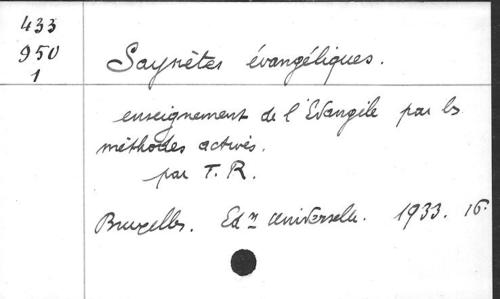 433
950
1
Saynètes évangéliques.
enseignement de l'Evangile par les
méthodes actives.
par T. R.
Bruxelles. Edn Universelle. 1933. 16°